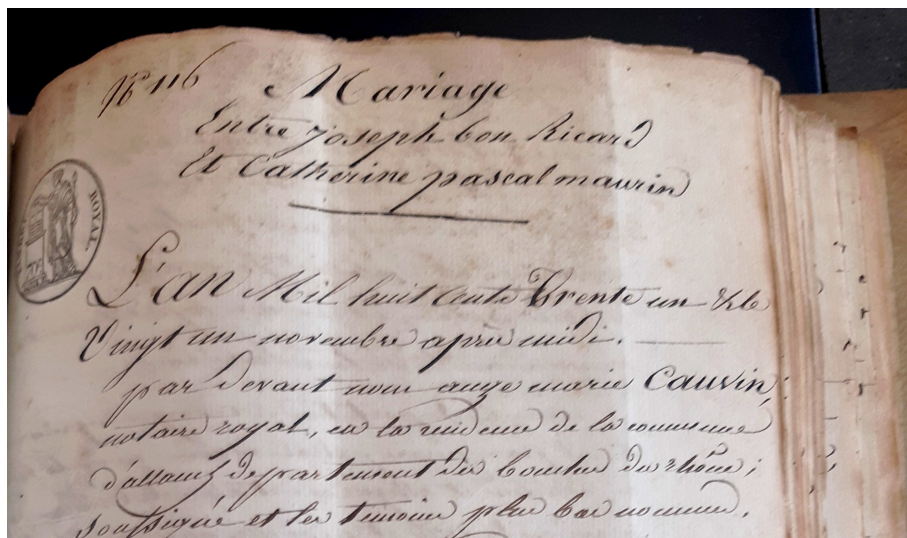 N.o 116
Mariage
Entre joseph bon Ricard
Et Catherine pascal maurin
ROYAL.
L'an Mil huit cents trente un & le
Vingt un novembre après midi.
par devant nous ange marie Cauvin;
notaire royal, en la residence de la commune
d'allauch departement des bouches du rhône;
soussigné et les temoins plus bas nommés,